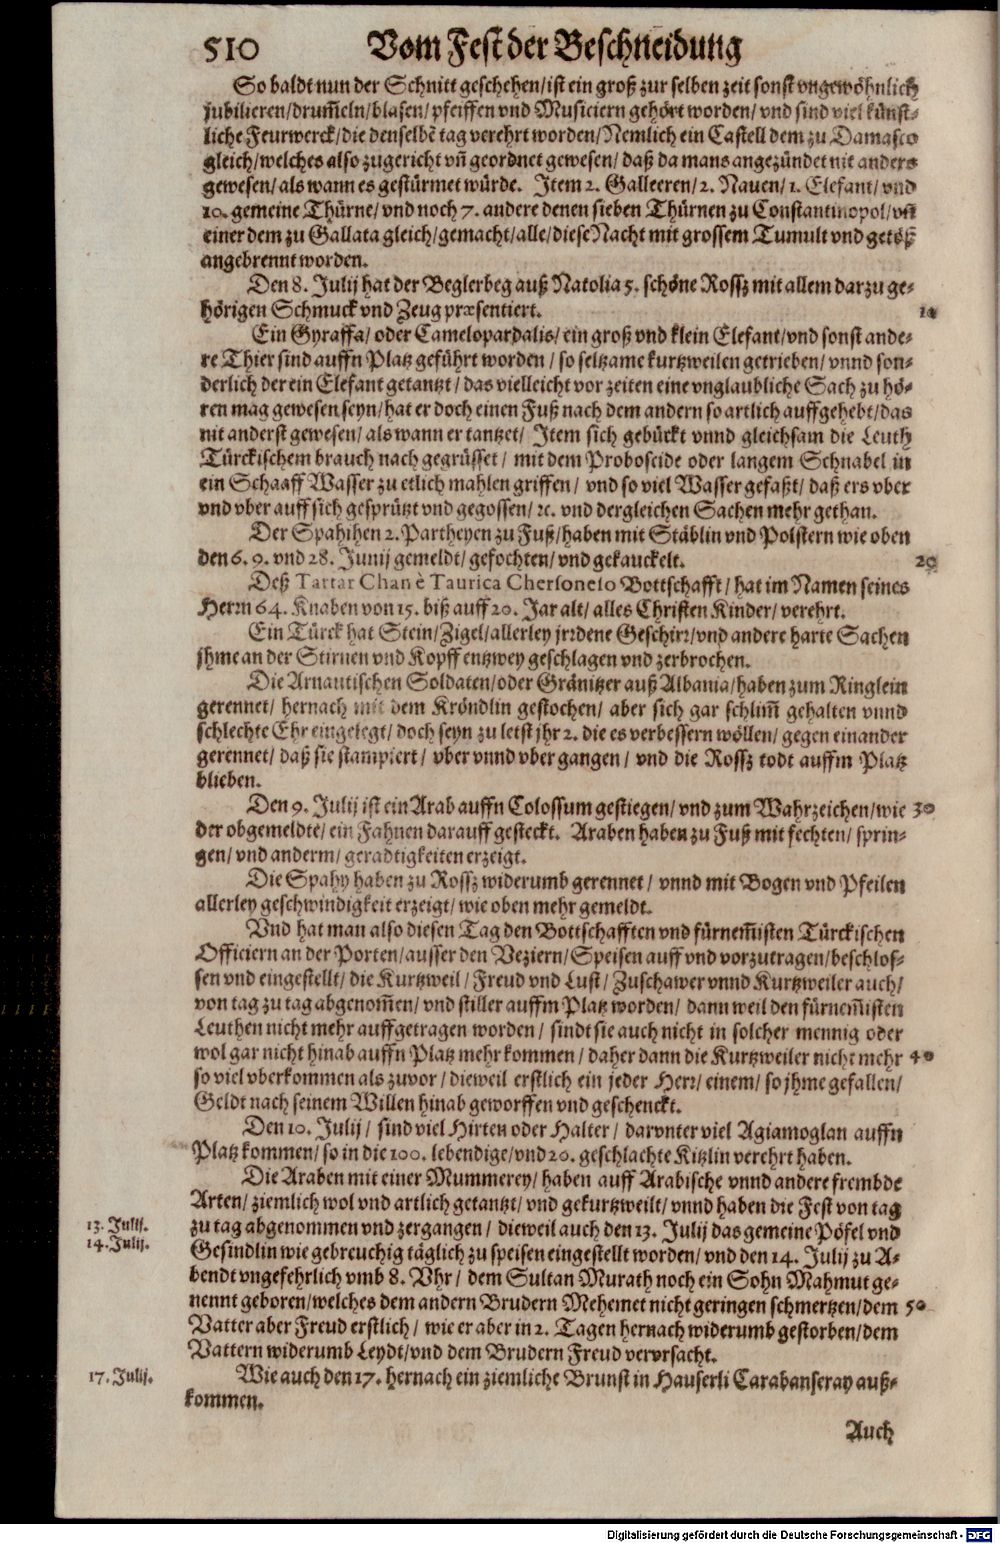 510 Vom Fest der Beschneidung
So baldt nun der Schnitt geschehen/ist ein groß zur selben zeit sonst vngewöhnlich
jubilieren/drum̃eln/blasen/pfeiffen vnd Musiciern gehört worden/vnd sind viel künst-
liche Feurwerck/die denselbẽ tag verehrt worden/Nemlich ein Castell dem zu Damasco
gleich/welches also zugericht vñ geordnet gewesen/ daß da mans angezündet nit anders
gewesen/als wann es gestürmet würde. Item 2. Galleeren/2. Nauen/1. Elefant/vnd
10. gemeine Thürne/vnd noch 7. andere denen sieben Thürnen zu Constantinopol/vñ
einer dem zu Gallata gleich/gemacht/alle/diese Nacht mit grossem Tumult vnd getöß
angebrennt worden.
Den 8. Julij hat der Beglerbeg auß Natolia 5. schöne Rossz mit allem darzu ge-
hörigen Schmuck vnd Zeug præsentiert. 10
Ein Gyraffa/ oder Camelopardalis/ein groß vnd klein Elefant/vnd sonst ande-
re Thier sind auffn Platz geführt worden/ so seltzame kurtzweilen getrieben/vnnd son-
derlich der ein Elefant getantzt/ das vielleicht vor zeiten eine vnglaubliche Sach zu hö-
ren mag gewesen seyn/hat er doch einen Fuß nach dem andern so artlich auffgehebt/das
nit anderst gewesen/als wann er tantzet/ Item sich gebückt vnnd gleichsam die Leuth
Türckischem brauch nach gegrüsset/ mit dem Proboscide oder langem Schnabel in
ein Schaaff Wasser zu etlich mahlen griffen/ vnd so viel Wasser gefaßt/ daß ers vber
vnd vber auff sich gesprützt vnd gegossen/ꝛc. vnd dergleichen Sachen mehr gethan.
Der Spahihen 2. Partheyen zu Fuß/haben mit Stäblin vnd Polstern wie oben
den 6. 9. vnd 28. Junij gemeldt/gefochten/vnd gekauckelt. 20
Deß Tartar Chan è Taurica Chersoneso Bottschafft/ hat im Namen seines
Herrn 64. Knaben von 15. biß auff 20. Jar alt/alles Christen Kinder/verehrt.
Ein Türck hat Stein/Zigel/allerley jrrdene Geschirr/vnd andere harte Sachen
jhme an der Stirnen vnd Kopff entzwey geschlagen vnd zerbrochen.
Die Arnautischen Soldaten/oder Gränitzer auß Albania/haben zum Ringlein
gerennet/ hernach mit dem Kröndlin gestochen/ aber sich gar schlim̃ gehalten vnnd
schlechte Ehr eingelegt/doch seyn zu letst jhr 2. die es verbessern wöllen/gegen einander
gerennet/ daß sie stampiert/ vber vnnd vber gangen/ vnd die Rossz todt auffm Platz
blieben.
Den 9. Julij ist ein Arab auffn Colossum gestiegen/vnd zum Wahrzeichen/wie 30
der obgemeldte/ein Fahnen darauff gesteckt. Araben haben zu Fuß mit fechten/sprin-
gen/vnd anderm/geradtigkeiten erzeigt.
Die Spahy haben zu Rossz widerumb gerennet/ vnnd mit Bogen vnd Pfeilen
allerley geschwindigkeit erzeigt/wie oben mehr gemeldt.
Vnd hat man also diesen Tag den Bottschafften vnd fürnem̃isten Türckischen
Officiern an der Porten/ausser den Veziern/Speisen auff vnd vorzutragen/beschlos-
sen vnd eingestellt/die Kurtzweil/Freud vnd Lust/Zuschawer vnnd Kurtzweiler auch/
von tag zu tag abgenom̃en/vnd stiller auffm Platz worden/ dann weil den fürnem̃isten
Leuthen nicht mehr auffgetragen worden/ sindt sie auch nicht in solcher mennig oder
wol gar nicht hinab auffn Platz mehr kommen/daher dann die Kurtzweiler nicht mehr 40
so viel vberkommen als zuvor/dieweil erstlich ein jeder Herr/einem/so jhme gefallen/
Geldt nach seinem Willen hinab geworffen vnd geschenckt.
Den 10. Julij/ sind viel Hirten oder Halter/ darvnter viel Agiamoglan auffn
Platz kommen/so in die 100. lebendige/vnd 20. geschlachte Kitzlin verehrt haben.
Die Araben mit einer Mummerey/haben auff Arabische vnnd andere frembde
Arten/ziemlich wol vnd artlich getantzt/vnd gekurtzweilt/vnnd haben die Fest von tag
13. Julij. zu tag abgenommen vnd zergangen/ dieweil auch den 13. Julij das gemeine Pöfel vnd
14. Julij. Gesindlin wie gebreuchig täglich zu speisen eingestellt worden/vnd den 14. Julij zu A-
bendt vngefehrlich vmb 8. Vhr/ dem Sultan Murath noch ein Sohn Mahmut ge-
nennt geboren/welches dem andern Brudern Mehemet nicht geringen schmertzen/dem 50
Vatter aber Freud erstlich/ wie er aber in 2. Tagen hernach widerumb gestorben/dem
Vattern widerumb Leydt/vnd dem Brudern Freud vervrsacht.
17. Julij. Wie auch den 17. hernach ein ziemliche Brunst in Hauserli Carabanseray auß-
kommen.
Auch
Digitalisierung gefördert durch die Deutsche Forschungsgemeinschaft - DFG